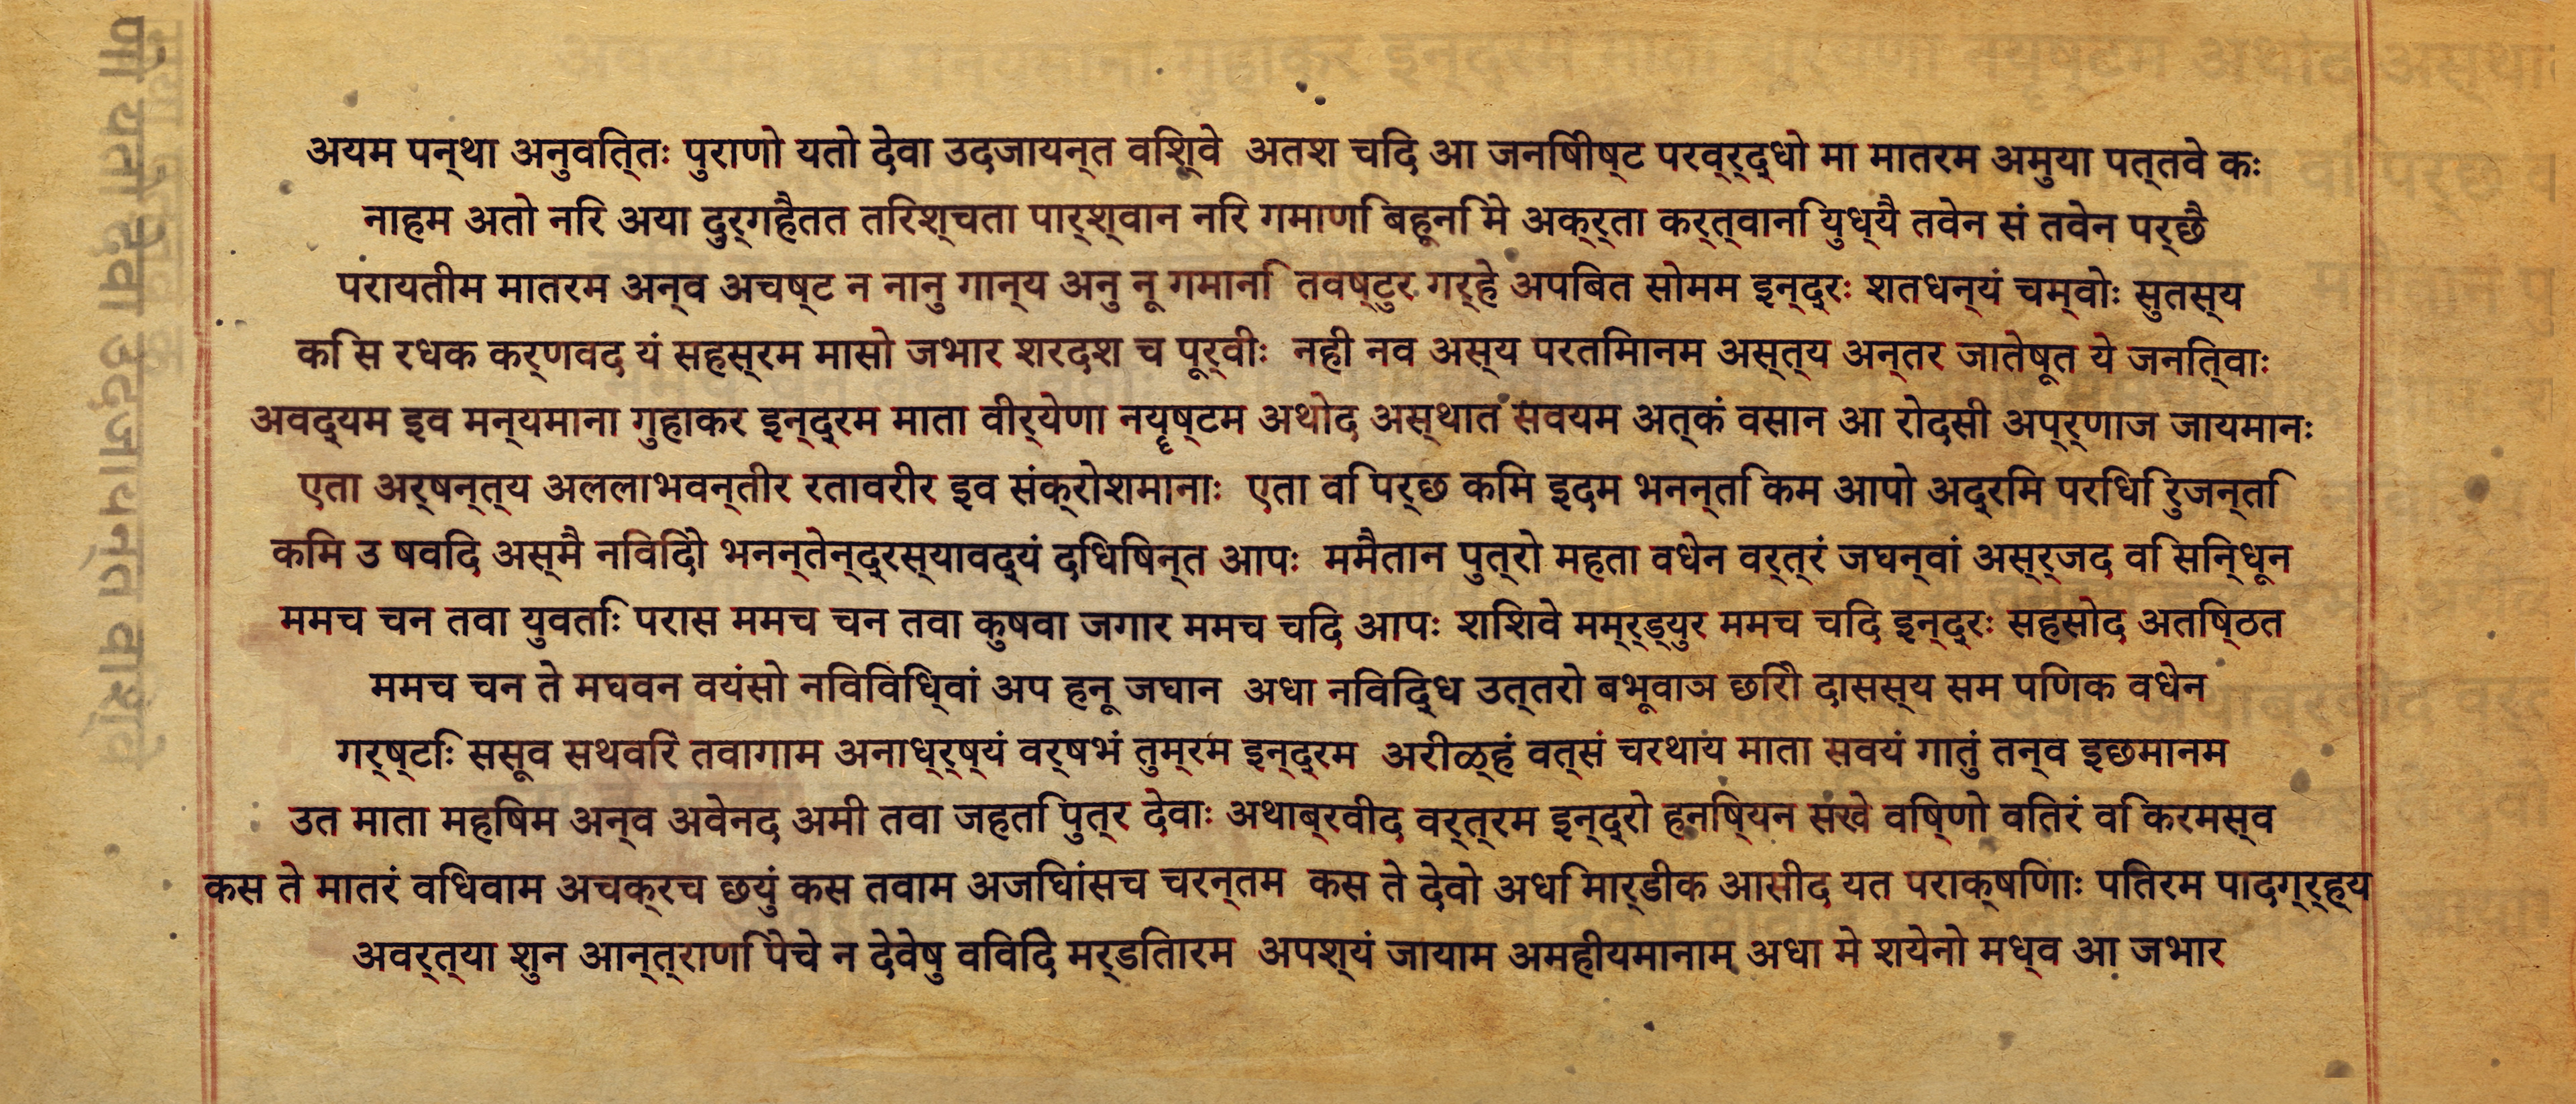 अयम पन्था अनुवित्तः पुराणो यतो देवा उदजायन्त विश्वे अतश चिद आ जनिषीष्ट परव्र्द्धो मा मातरम अमुया पत्तवे कः
नाहम अतो निर अया दुर्गहैतत तिरश्चता पार्श्वान निर गमाणि बहूनि मे अक्र्ता कर्त्वानि युध्यै तवेन सं तवेन पर्छै
परायतीम मातरम अन्व अचष्ट न नानु गान्य अनु नू गमानि तवष्टुर गर्हे अपिबत सोमम इन्द्रः शतधन्यं चम्वोः सुतस्य
कि स रधक कर्णवद यं सहस्रम मासो जभार शरदश च पूर्वीः नही नव अस्य परतिमानम अस्त्य अन्तर जातेषूत ये जनित्वाः
अवद्यम इव मन्यमाना गुहाकर इन्द्रम माता वीर्येणा नयॄष्टम अथोद अस्थात सवयम अत्कं वसान आ रोदसी अप्र्णाज जायमानः
एता अर्षन्त्य अललाभवन्तीर रतावरीर इव संक्रोशमानाः एता वि पर्छ किम इदम भनन्ति कम आपो अद्रिम परिधिं रुजन्ति
किम उ षविद अस्मै निविदो भनन्तेन्द्रस्यावद्यं दिधिषन्त आपः ममैतान पुत्रो महता वधेन वर्त्रं जघन्वां अस्र्जद वि सिन्धून
ममच चन तवा युवतिः परास ममच चन तवा कुषवा जगार ममच चिद आपः शिशवे मम्र्ड्युर ममच चिद इन्द्रः सहसोद अतिष्ठत
ममच चन ते मघवन वयंसो निविविध्वां अप हनू जघान अधा निविद्ध उत्तरो बभूवाञ छिरो दासस्य सम पिणक वधेन
गर्ष्टिः ससूव सथविरं तवागाम अनाध्र्ष्यं वर्षभं तुम्रम इन्द्रम अरीळ्हं वत्सं चरथाय माता सवयं गातुं तन्व इछमानम
उत माता महिषम अन्व अवेनद अमी तवा जहति पुत्र देवाः अथाब्रवीद वर्त्रम इन्द्रो हनिष्यन सखे विष्णो वितरं वि करमस्व
कस ते मातरं विधवाम अचक्रच छयुं कस तवाम अजिघांसच चरन्तम कस ते देवो अधि मार्डीक आसीद यत पराक्षिणाः पितरम पादग्र्ह्य
अवर्त्या शुन आन्त्राणि पेचे न देवेषु विविदे मर्डितारम अपश्यं जायाम अमहीयमानाम् अधा मे शयेनो मध्व आ जभार